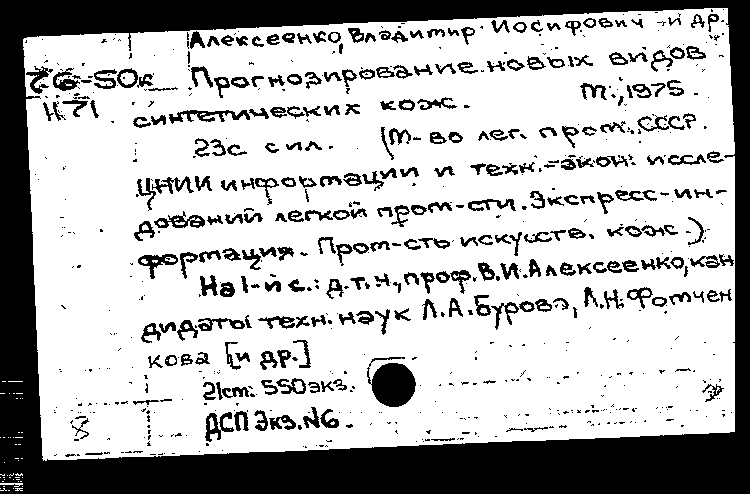 Алексеенко, Владимир Иосифович и др.
76-50к Прогнозирование новых видов
1171 синтетических кож. М., 1975.
23с с ил. (М-во лег. пром. СССР.
ЦНИИ информации и техн.-экон. иссле-
дований легкой пром-сти. Экспресс-ин-
формация. Пром-сть искусств. кож.)
На 1-й с.: д.т.н., проф. В.И. Алексеенко, кан
дидаты техн. наук Л.А. Бурова, Л.Н. Фомчен
кова [и др.]
21cm. 550 экз.
8 ДСП Экз. №6.